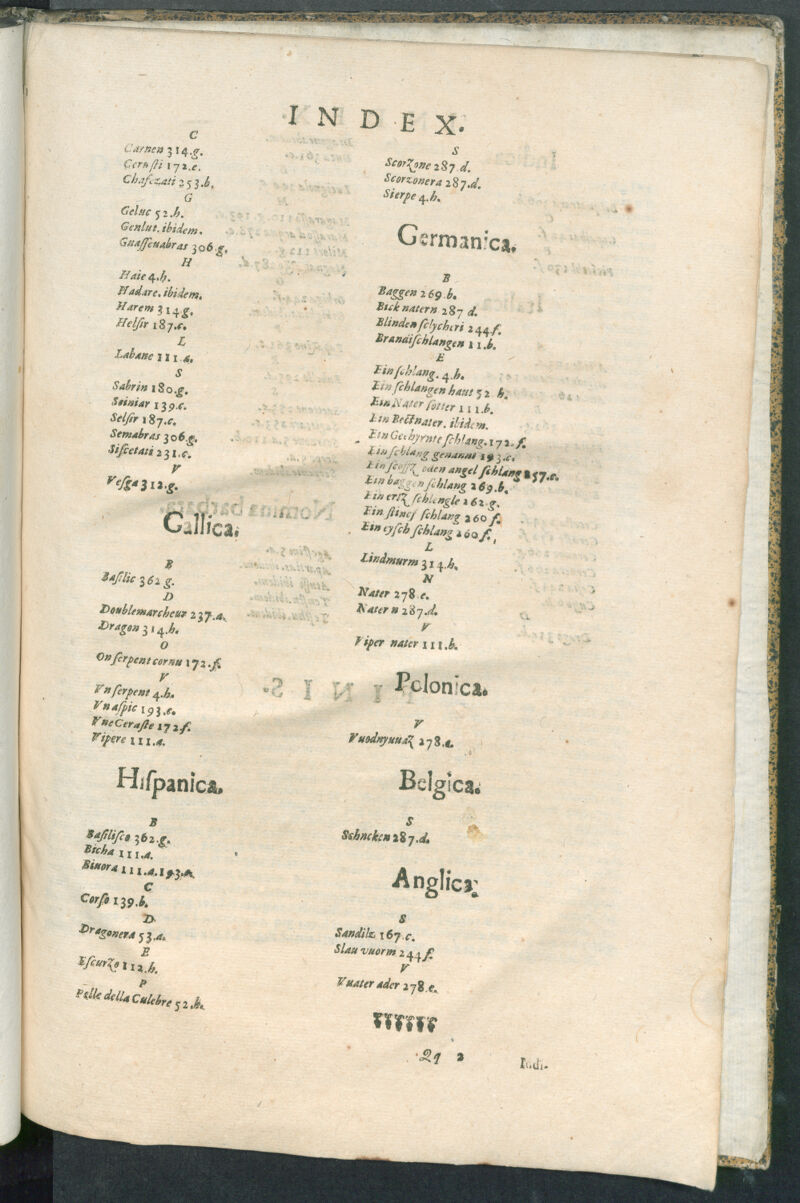 INDEX.
C
Carnen 314.g.
Cerusti 172.e.
Chasezati 253.b.
G
Geluc 52.h.
Genlut. ibidem.
Guassenabras 306.g.
H
Haie 4.h.
Hadare. ibidem.
Harem 314g.
Helsir 187.c.
L
Labane 111.a.
S
Sabrin 180.g.
Seiniar 139.c.
Selsir 187.c.
Semabras 306.g.
Siscetati 231.c.
V
Vesga 312.g.
Gallica.
B
Basilic 362 g.
D
Doublemarcheur 237.a.
Dragon 314.h.
O
On serpent cornu 172.f.
V
Vn serpent 4.h.
Vn aspic 193.e.
Vne Ceraste 172 f.
Vipere 111.a.
Hiſpanica.
B
Baſiliſco 362.g.
Bicha 111.a.
Biuora 111.a.193.a.
C
Corſo 139.b.
D
Dragonera 53.a.
E
Eſcurzo 112.h.
P
Pelle della Culebre 52.h.
S
Scorzone 287.d.
Scorzonera 287.d.
Sierpe 4.h.
Germanica.
B
Baggen 269.b.
Bick natern 287 d.
Blinden ſclycheri 244f.
Brandiſchlangen 11.b.
E
Ein ſchlang. 4.h.
Ein ſchlangen haut 52 h.
Ein Nater ſotter 111.b.
Ein Becknater. ibidem.
Ein Gechyrnte ſchlang. 172.f.
Ein ſchlang genannt 193.c.
oden angel ſchlang 257.c.
Ein baggen ſchlang 269.b.
Ein ertz ſchlengle 262.g.
Ein ſtincſ ſchlang 260 f.
Ein eyſch ſchlang 260 f.
L
Lindmurm 314.h.
N
Nater 278.e.
Natern 287.d.
V
Viper nater 111.b.
Polonica.
V
Vuodnyuuaz 278.e.
Belgica.
S
Schneken 287.d.
Anglica.
S
Sandilz 167.c.
Slau vuorm 244 f.
V
Vuater ader 278.e.
2
Indi-